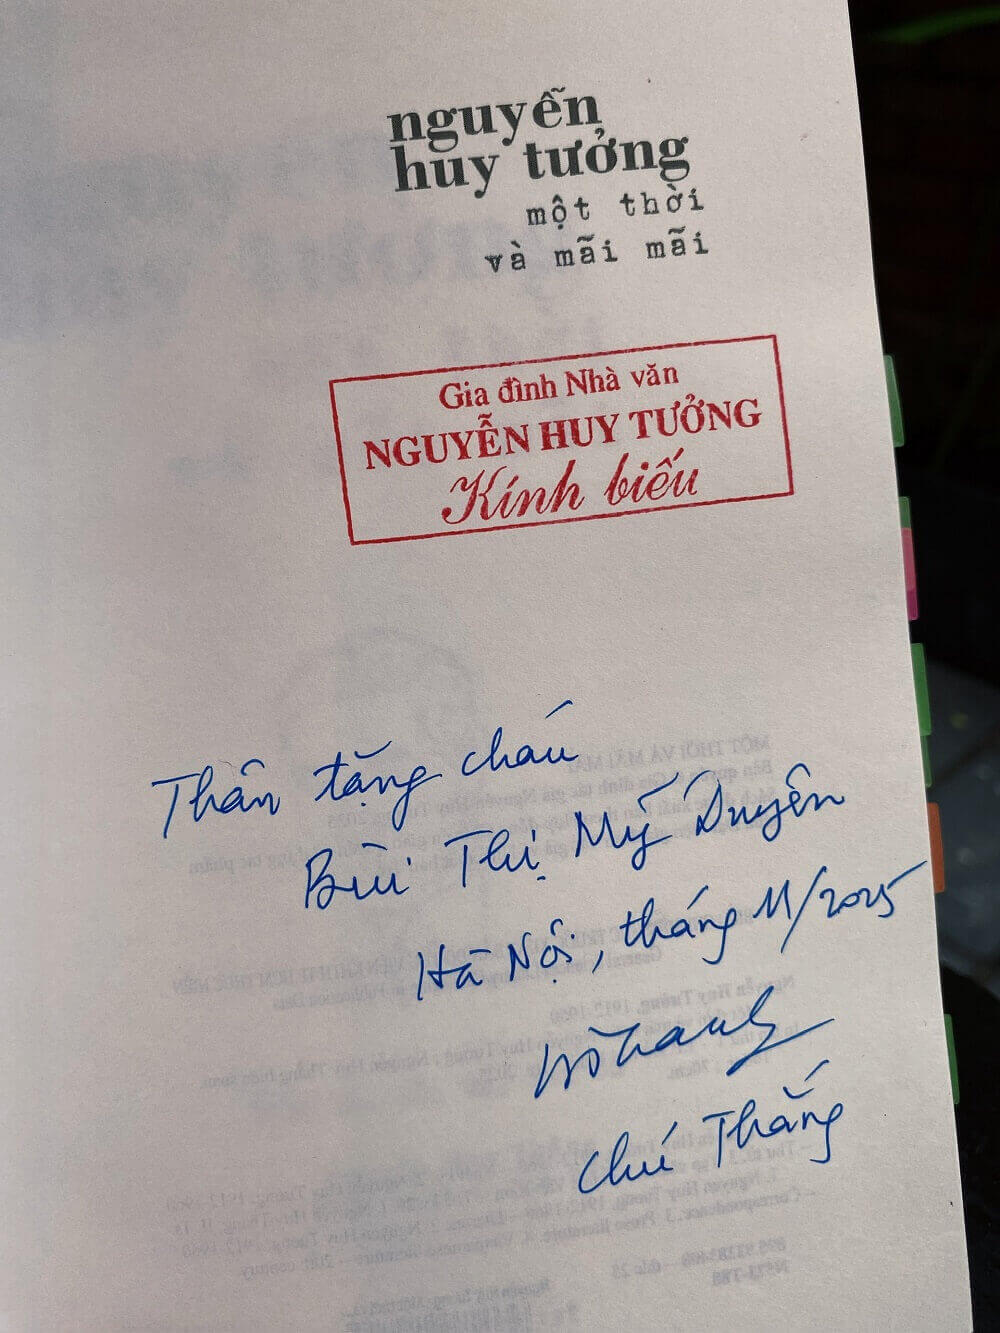 nguyễn
huy tưởng
một thời
và mãi mãi
Gia đình Nhà văn
NGUYỄN HUY TƯỞNG
Kính biếu
Thân tặng cháu
Bùi Thị Mỹ Duyên
Hà Nội, tháng 11/2025
chú Thắng